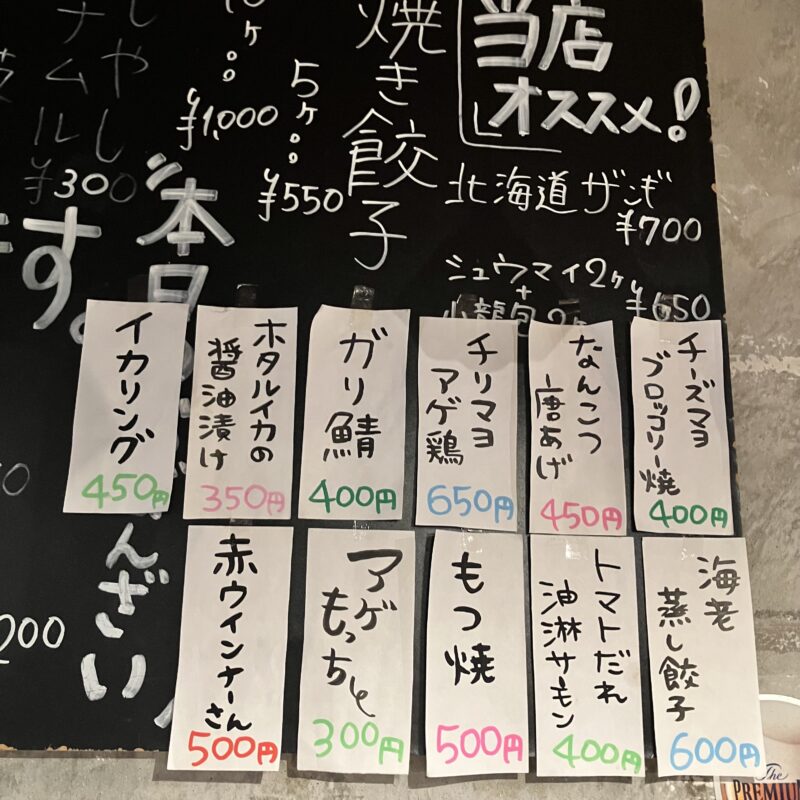 当店
オススメ!
北海道ザンギ
¥700
シュウマイ2ヶ
+
小龍包2ヶ
¥650
焼き餃子
5ヶ
¥550
10ヶ
¥1,000
もやし
ナムル
¥300
本日
ざんざい
す。
200
チーズマヨ
ブロッコリー焼
400円
なんこつ
唐あげ
450円
チリマヨ
アゲ鶏
650円
ガリ鯖
400円
ホタルイカの
醤油漬け
350円
イカリング
450円
海老
蒸し餃子
600円
トマトだれ
油淋サーモン
400円
もつ焼
500円
アゲ
もっちゃ
300円
赤ウインナーさん
500円
The
PREMIU